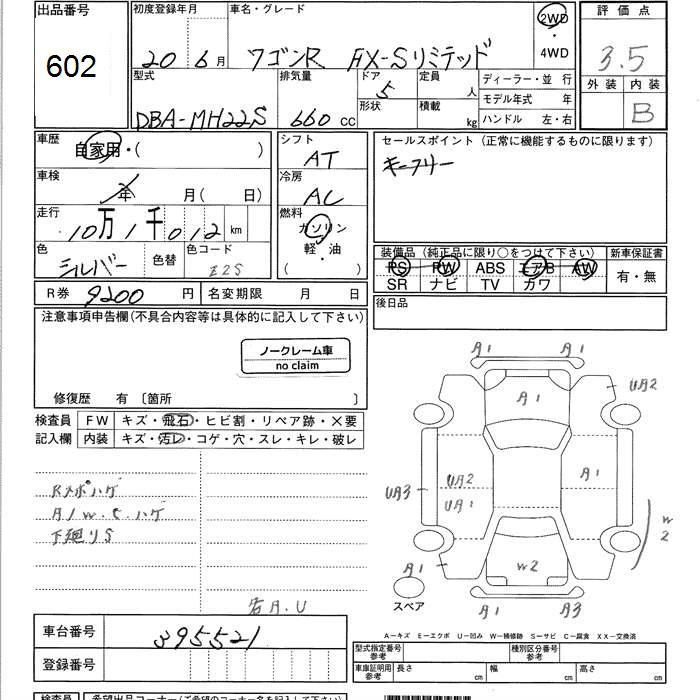 出品番号 602
初度登録年月 20 6月
車名・グレード ワゴンR FX-Sリミテッド
2WD ・ 4WD
評価点 3.5
外装 内装 B
型式 DBA-MH22S
排気量 660 cc
ドア 5
形状
定員 人
積載 kg
ディーラー・並 行
モデル年式 年
ハンドル 左・右
車歴 自家用・( )
シフト AT
セールスポイント(正常に機能するものに限ります)
キーフリー
車検 年 月( 日)
冷房 AC
走行 10万1千012 km
燃料 ガソリン・軽・油 ( )
色 シルバー 色替 色コード Z2S
装備品(純正品に限り○をつけて下さい) 新車保証書
PS PW ABS エアB AW 有・無
SR ナビ TV カワ
R券 9200 円 名変期限 月 日
後日品
注意事項申告欄(不具合内容等は具体的に記入して下さい)
ノークレーム車
no claim
修復歴 有 〔箇所 〕
検査員 FW キズ・飛石・ヒビ割・リペア跡・×要
記入欄 内装 キズ・汚レ・コゲ・穴・スレ・キレ・破レ
Rスポハゲ
A/W.C.ハゲ
下廻りS
右A.U
A1 A1
A1 UA2
UA3 UA2 A1
UA1
W2
A1 W2
A1 A3
スペア
A-キズ E-エクボ U-凹み W-補修跡 S-サビ C-腐食 XX-交換済
車台番号 395521
登録番号
型式指定番号 参考 種別区分番号 参考
車庫証明用 参考 長さ cm 幅 cm 高さ cm
検査員 希望出品コーナー(ご希望のコーナー名を記入して下さい)